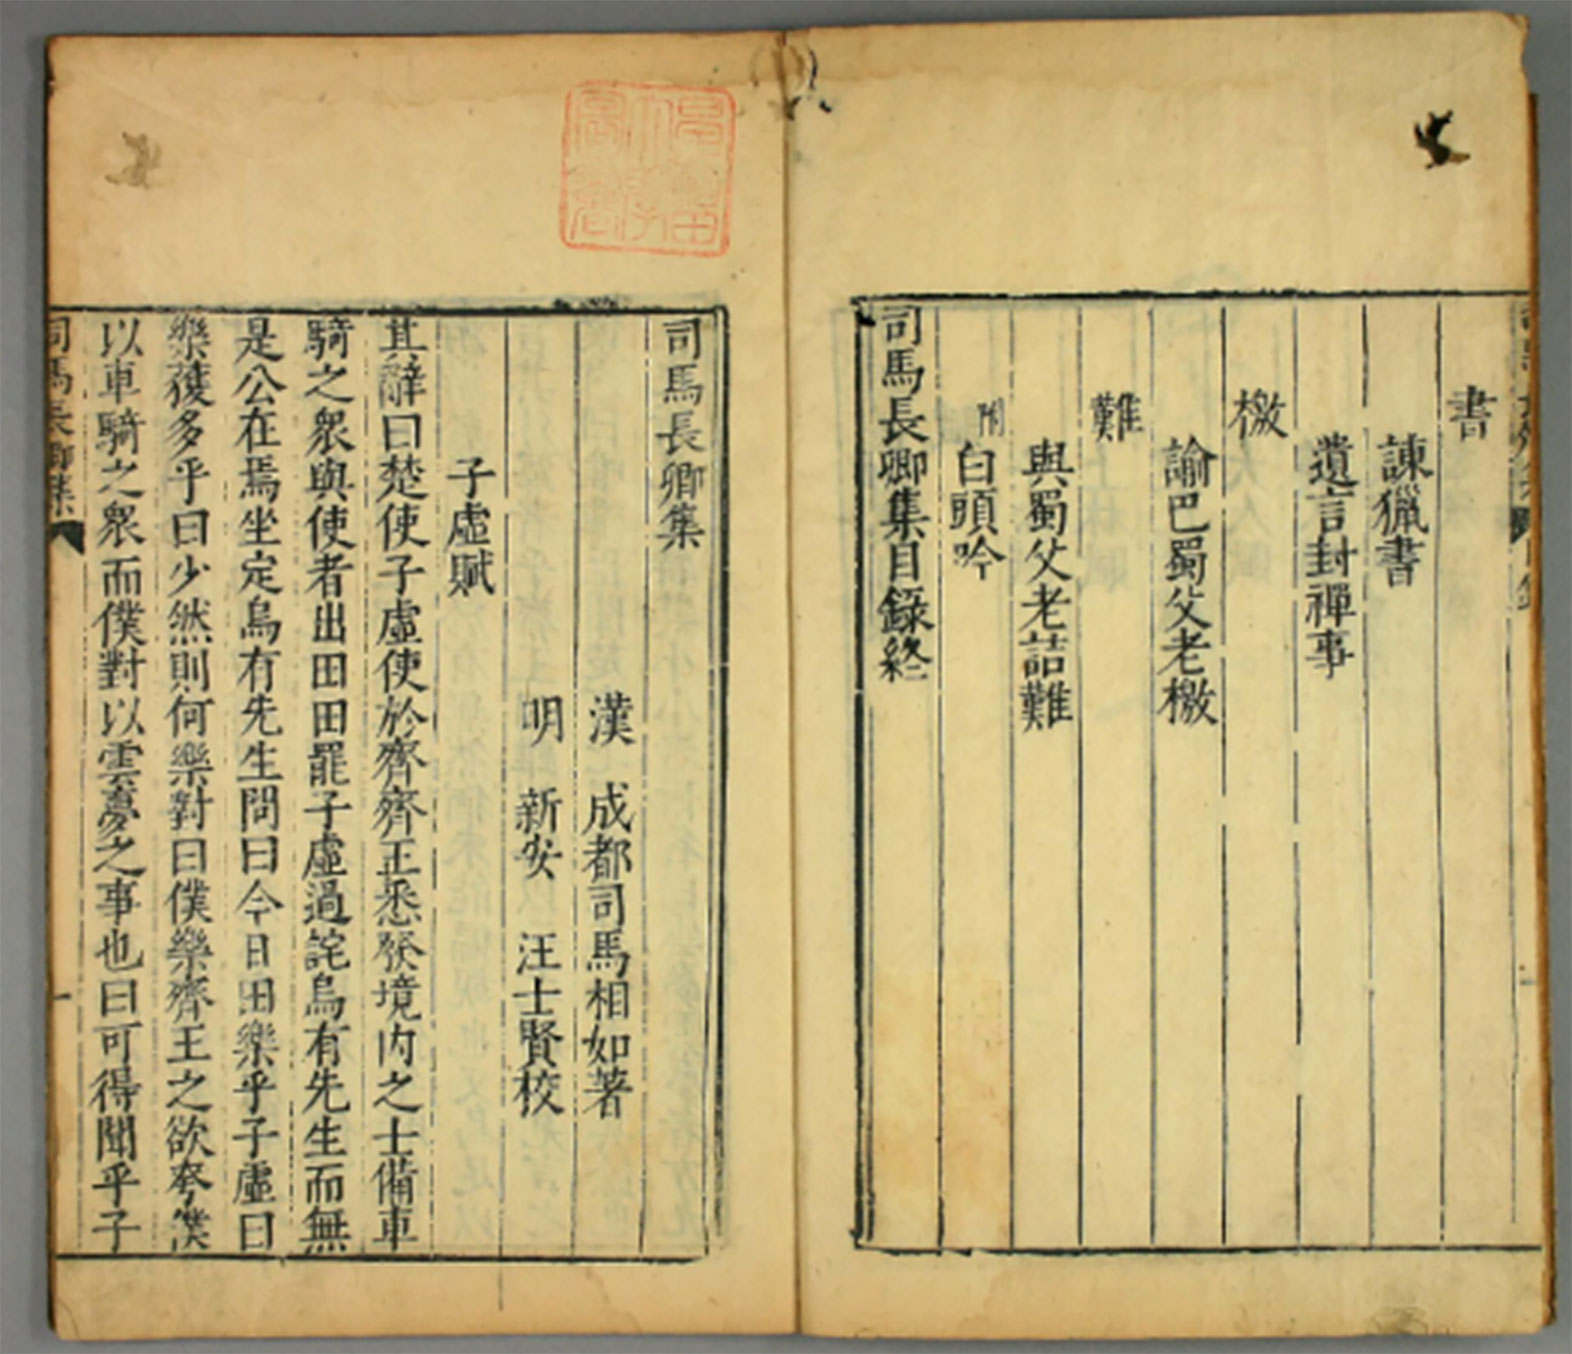 書
諫獵書
遺言封禪事
檄
諭巴蜀父老檄
難
與蜀父老詰難
附
白頭吟
司馬長卿集目錄終
司馬長卿集
漢 成都司馬相如著
明 新安 汪士賢校
子虛賦
其辭曰楚使子虛使於齊齊王悉發境內之士備車
騎之衆與使者出田田罷子虛過詫烏有先生而無
是公在焉坐定烏有先生問曰今日田樂乎子虛曰
樂獲多乎曰少然則何樂對曰僕樂齊王之欲夸僕
以車騎之衆而僕對以雲夢之事也曰可得聞乎子
司馬長卿集